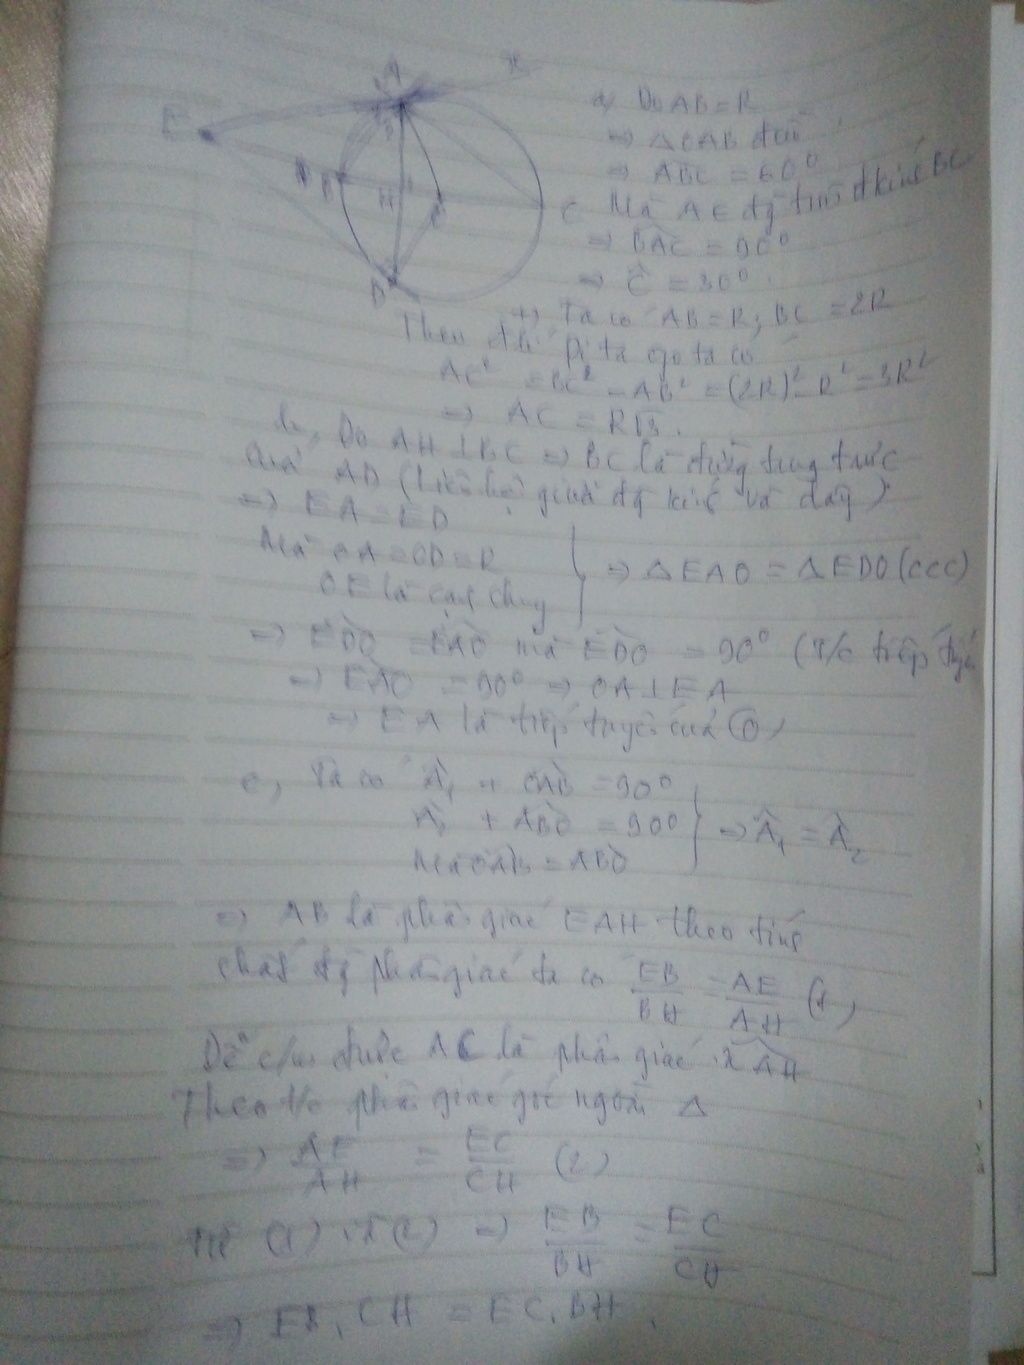 a, Do AB = R
=> ΔOAB đều
=> ABC = 60°
Mà A ∈ đg tròn đ kính BC
=> BAC = 90°
=> C = 30°
+, Ta có AB = R; BC = 2R
Theo đlí pi ta go ta có
AC² = BC² - AB² = (2R)² - R² = 3R²
=> AC = R√3.
b, Do AH ⊥ BC => BC là đường trung trực
của AD (liên hệ giữa đg kính và dây)
=> EA = ED
Mà OA = OD = R
OE là cạnh chung
=> ΔEAO = ΔEDO (ccc)
=> EDO = EAO mà EDO = 90° (T/c tiếp tuyến
=> EAO = 90° => OA ⊥ EA
=> EA là tiếp tuyến của (O)
c, Ta có A₁ + OAB = 90°
A₂ + ABO = 90°
Mà OAB = ABO
=> A₁ = A₂
=> AB là phân giác EAH theo tính
chất đg phân giác ta có EB/BH = AE/AH (1)
Dễ c/m được AC là phân giác xAH
Theo t/c phân giác góc ngoài Δ
=> AE/AH = EC/CH (2)
Từ (1) và (2) => EB/BH = EC/CH
=> EB. CH = EC. BH.
A
x
E
B
H
O
C
D